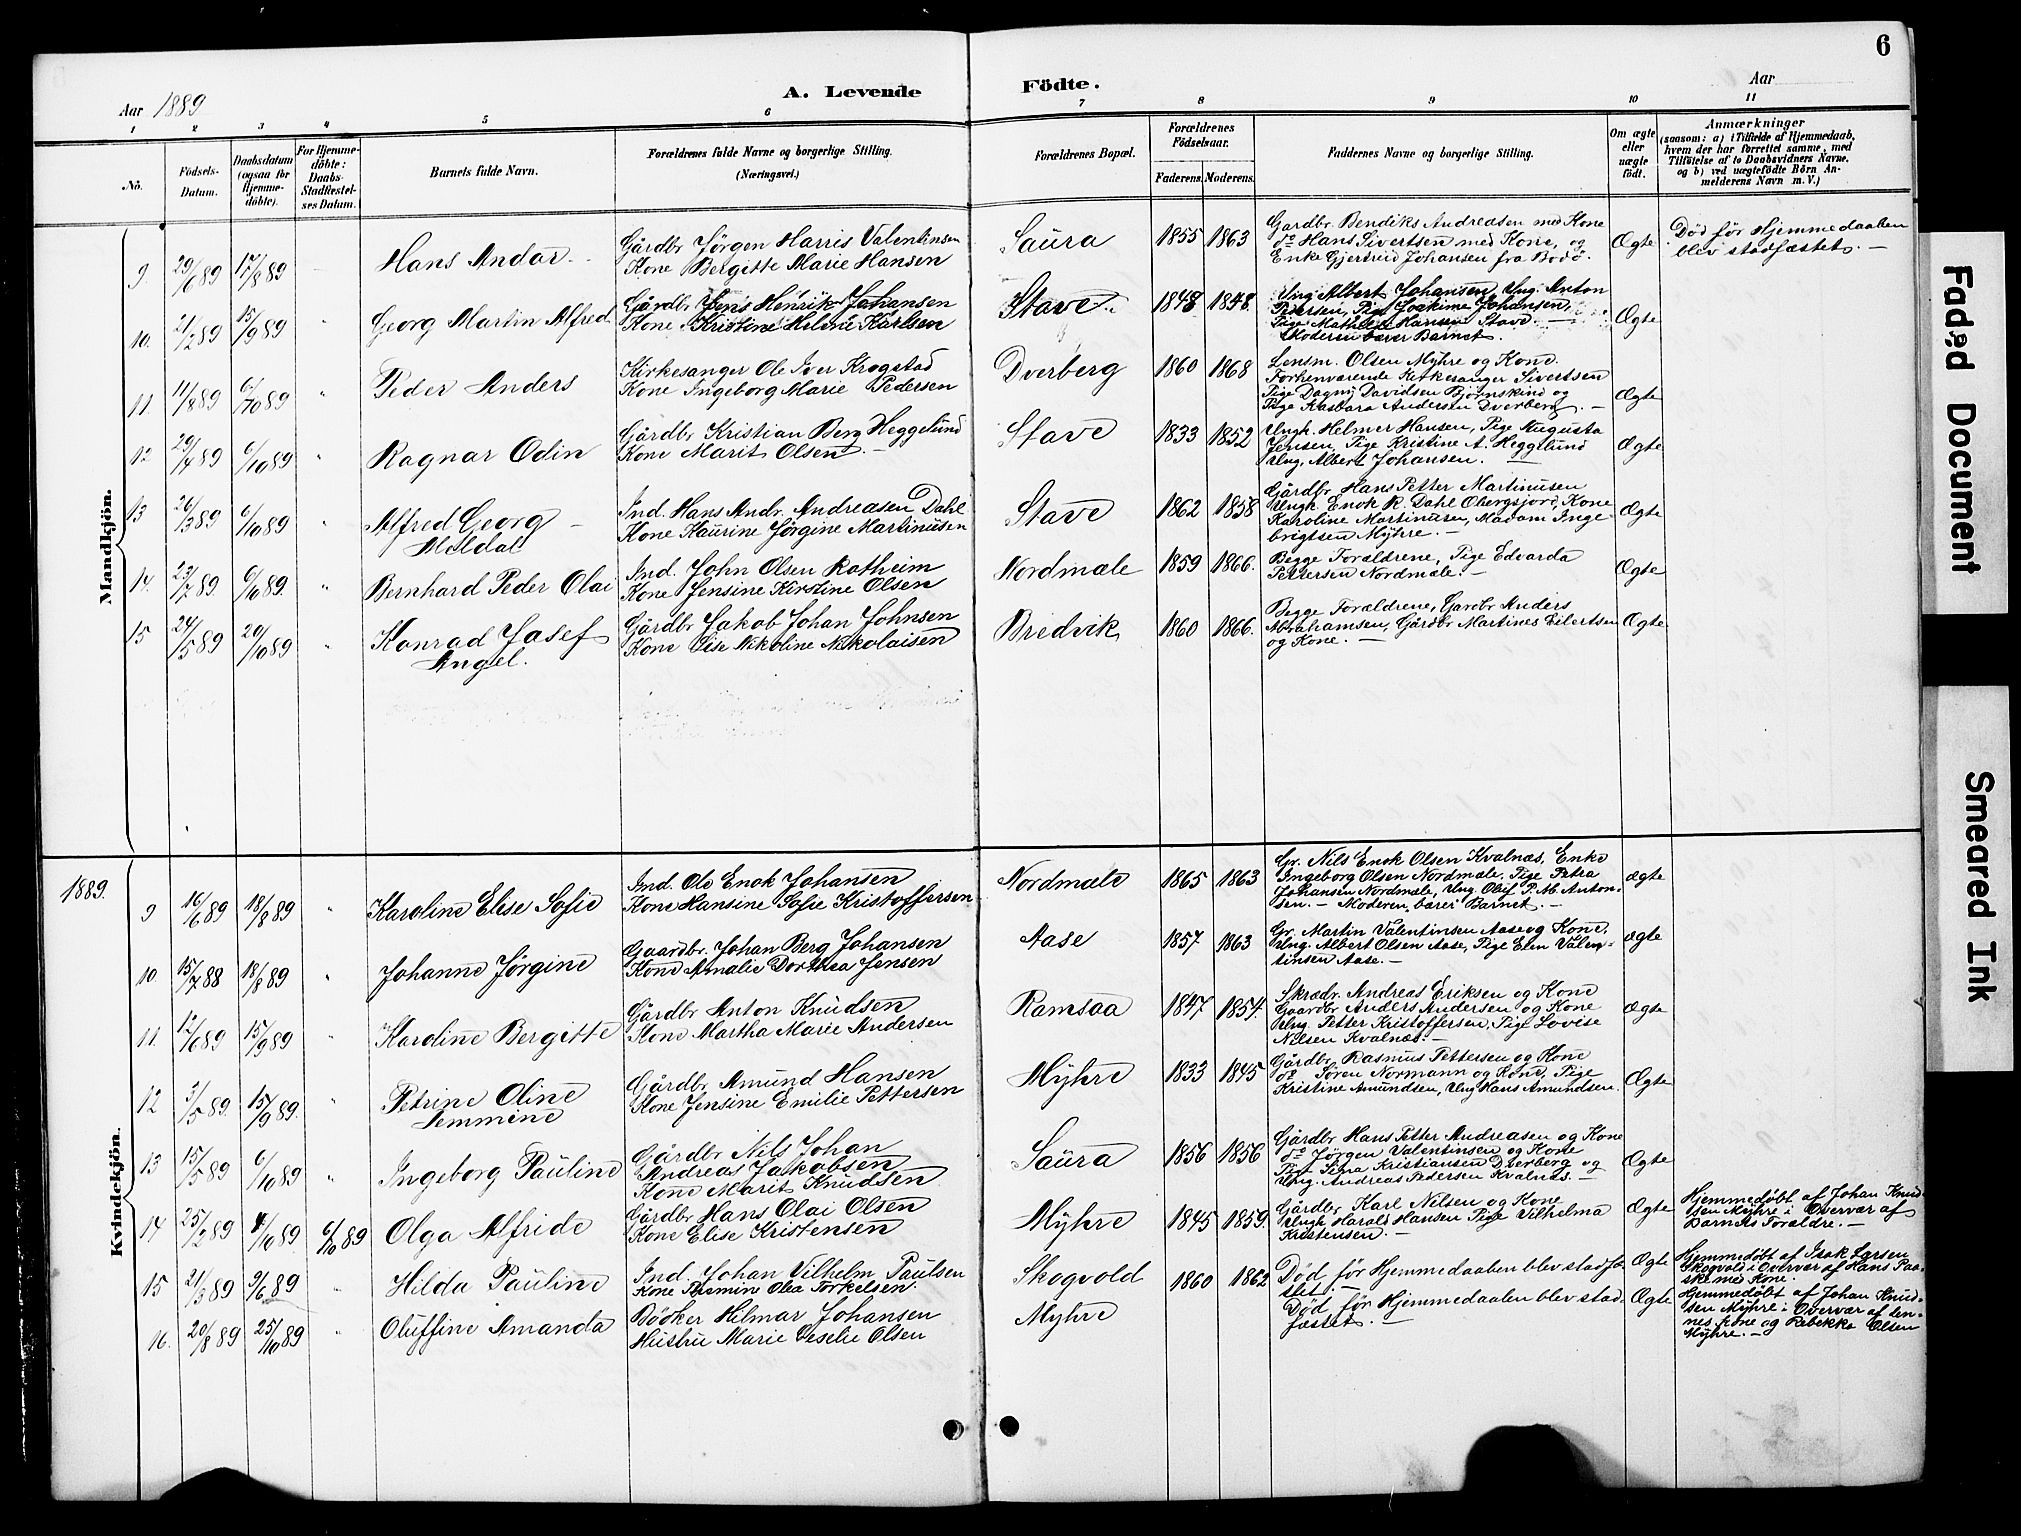 6
Aar 1889
A. Levende Födte.
Aar
1 2 3 4 5 6 7 8 9 10 11
No.
Födsels-Datum.
Daabsdatum (ogsaa for Hjemme-döbte).
For Hjemme-döbte: Daabs-Stadfæstel-ses Datum.
Barnets fulde Navn.
Forældrenes fulde Navne og borgerlige Stilling. (Næringsvei.)
Forældrenes Bopæl.
Forældrenes Födselsaar.
Faderens. Moderens.
Faddernes Navne og borgerlige Stilling.
Om ægte eller uægte födt.
Anmærkninger (saasom: a) i Tilfælde af Hjemmedaab, hvem der har forrettet samme, med Tilföielse af to Daabsvidners Navne, og b) ved uægtefödte Börn An-melderens Navn m. V.)
Mandkjön.
9. 29/6 89 17/8 89 Hans Andor
Gårdbr Jørgen Harris Valentinsen
Kone Bergitte Marie Hansen
Saura 1855 1863
Gårdbr. Bendiks Andreasen med Kone
do Hans Sivertsen med Kone, og
Enke Gjertrud Johansen fra Bodø.
Ægte
Død før Hjemmedaaben
blev stadfæstet. —
10. 21/2 89 15/9 89 Georg Martin Alfred
Gårdbr Jens Henrik Johansen
Kone Kristine Heline Karlsen
Stave 1848 1848.
Ung Albert Johansen, Ung. Anton
Pedersen, Pige Joakime Johansen,
Pige Mathilde Hansen Stave. —
Moderen bærer Barnet.
Ægte
11 11/8 89 6/10 89 Peder Anders
Kirkesanger Ole Iver Krogstad
Kone Ingeborg Marie Pedersen
Dverberg 1860 1868
Lensm. Olsen Myhre og Kone.
Forhenværende Kirkesanger Sivertsen
Pige Dagny Davidsen Bjørnskind og
Pige Kasbara Andersen Dverberg. —
Ægte
12 29/4 89 6/10 89 Ragnar Odin
Gårdbr Kristian Berg Heggelund
Kone Marit Olsen. —
Stave 1833 1852
Ungk. Helmer Hansen, Pige Augusta
Jensen, Pige Kristine A. Hegglund
Ung. Albert Johansen. —
Ægte
13 26/3 89 6/10 89 Alfred Georg
Meldal
Ind. Hans Andr. Andreasen Dahl
Kone Kaurine Jørgine Martinusen
Stave 1862 1858
Gårdbr. Hans Petter Martinusen
Ungk. Enok R. Dahl Åbergsjord, Kone
Karoline Martinusen, Madam Inge
brigtsen Myhre. —
Ægte
14. 23/7 89 6/10 89. Bernhard Peder Olai
Ind. John Olsen Ratheim
Kone Jensine Kirstine Olsen
Nordmæle 1859 1866.
Begge Forældrene, Pige Edvarda
Pettersen Nordmæle. —
Ægte
15 24/5 89 20/10 89 Konrad Josef
Angel.
Gårdbr Jakob Johan Johnsen
Kone Lise Nikoline Nikolaisen
Bredvik 1860 1866.
Begge Forældrene, Gårdbr Anders
Abrahamsen, Gårdbr Martines Eilertsen
og Kone. —
Ægte
1889.
Kvindekjön.
9 16/6 89 18/8 89 Karoline Elise Sofie
Ind. Ole Enok Johansen
Kone Hansine Sofie Kristoffersen
Nordmæle 1865 1863
Gr. Nils Enok Olsen Kvalnæs, Enke
Ingeborg Olsen Nordmæle, Pige Petra
Johansen Nordmæle, Ung. Oluf P. M. Anton-
sen. — Moderen bærer Barnet. —
ægte
10. 15/7 88 18/8 89 Johanne Jørgine
Gaardbr. Johan Berg Johansen
Kone Amalie Dorthea Jensen
Aase 1857 1863
Gr. Martin Valentinsen Aase og Kone,
Ung. Albert Olsen Aase, Pige Elen Valen-
tinsen Aase. —
ægte
11. 12/6 89 15/9 89 Karoline Bergitte
Gårdbr Anton Knudsen
Kone Martha Marie Andersen
Ramsaa 1847 1854.
Skrædr. Andreas Eriksen og Kone
Gaardbr Anders Andersen og Kone
Ung. Petter Kristoffersen, Pige Lovise
Nilsen Kvalnæs. —
Ægte
12 3/5 89. 15/9 89. Petrine Oline
Jemmine
Gårdbr Amund Hansen
Kone Jensine Emilie Pettersen
Myhre 1833 1845
Gårdbr Rasmus Pettersen og Kone
do Søren Normann og Kone, Pige
Kristine Amundsen, Ung Hans Amundsen.
Ægte
13 15/5 89 6/10 89 Ingeborg Pauline
Gårdbr Nils Johan
Andreas Jakobsen
Kone Marit Knudsen
Saura 1856 1856
Gårdbr Hans Petter Andreasen og Kone
do Jørgen Valentinsen og Kone
Pige Sina Kristiansen Dverberg og
Ung. Andreas Pedersen Kvalnæs. —
Ægte
14 25/2 89 4/10 89 6/10 89 Olga Alfride
Gårdbr Hans Olai Olsen
Kone Elise Kristensen
Myhre 1845 1859.
Gårdbr Karl Nilsen og Kone
Ungk Harald Hansen Pige Vilhelma
Kristensen. —
Ægte
Hjemmedøbt af Johan Knud-
sen Myhre i Overvær af
Barnets Forældre. —
15 21/3 89 9/6 89 Hilda Pauline
Ind. Johan Vilhelm Paulsen
Kone Thomine Olea Torkelsen.
Skogvold 1860 1862
Død før Hjemmedaaben blev stadfæ
stet. —
Ægte
Hjemmedøbt af Isak Larsen
Skogvold i Overvær af Hans Paa-
ske med Kone.
16. 20/8 89 25/10 89 Oluffine Amanda
Bødker Helmar Johansen
Hustru Marie Leselie Olsen
Myhre
Død før Hjemmedaaben blev stad-
fæstet. —
Ægte
Hjemmedøbt af Johan Knud-
sen Myhre i Overvær af den-
nes Kone og Rebekka Olsen
Myhre. —
Faded Document
Smeared Ink